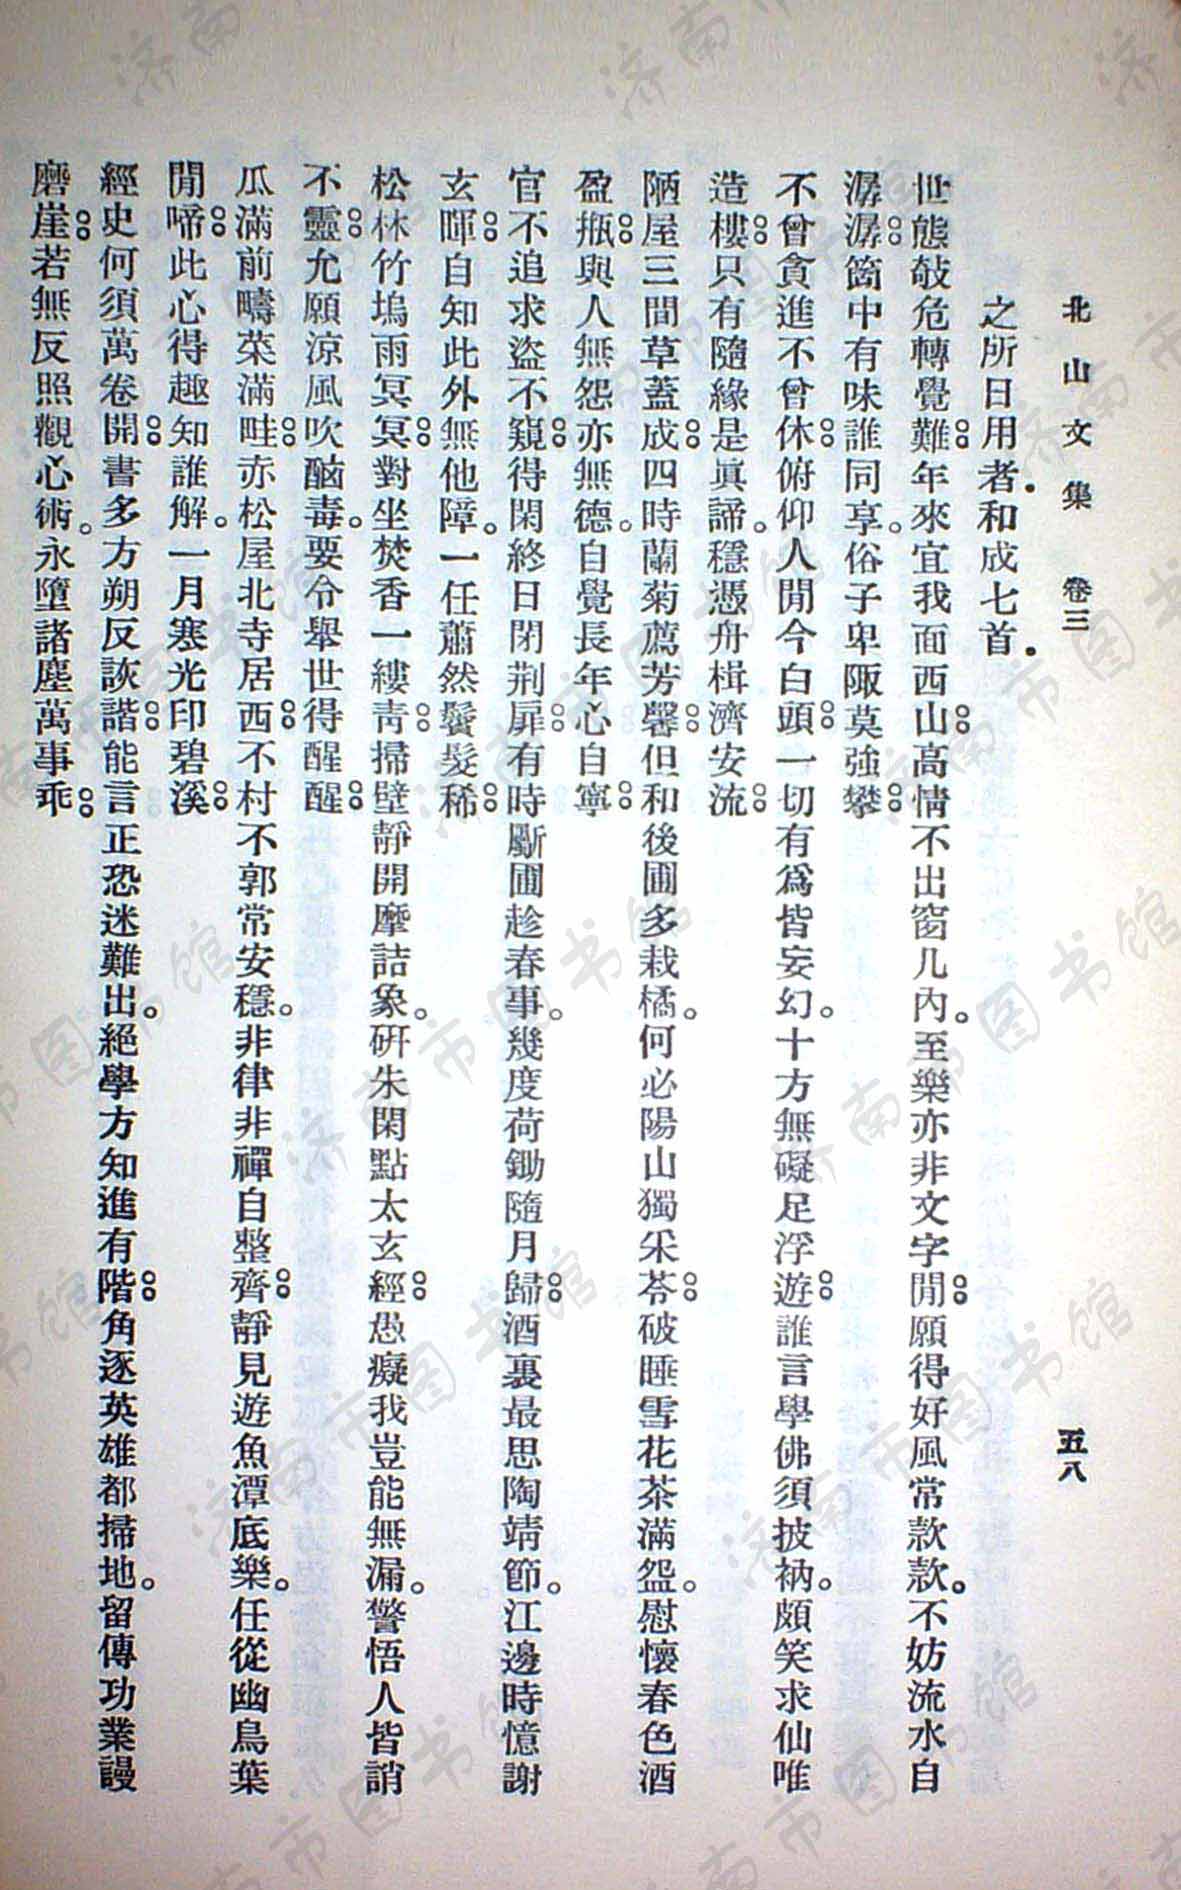 北山文集 卷三 五八
之所日用者和成七首
世態敧危轉覺難年來宜我面西山高情不出窗几內至樂亦非文字閒願得好風常款款不妨流水自
潺潺箇中有味誰同享俗子卑陬莫強攀
不曾貪進不曾休俯仰人閒今白頭一切有爲皆妄幻十方無礙足浮遊誰言學佛須披衲頗笑求仙唯
造樓只有隨緣是眞諦穩憑舟楫濟安流
陋屋三間草蓋成四時蘭菊薦芳馨但和後圃多栽橘何必陽山獨采苓破睡雪花茶滿盌慰懷春色酒
盈瓶與人無怨亦無德自覺長年心自寧
官不追求盜不窺得閑終日閉荆扉有時斸圃趁春事幾度荷鋤隨月歸酒裏最思陶靖節江邊時憶謝
玄暉自知此外無他障一任蕭然鬢髮稀
松林竹塢雨冥冥對坐焚香一縷靑掃壁靜開摩詰象硏朱閑點太玄經愚癡我豈能無漏警悟人皆誚
不靈允願涼風吹酗毒要令舉世得醒醒
瓜滿前疇菜滿畦赤松屋北寺居西不村不郭常安穩非律非禪自整齊靜見遊魚潭底樂任從幽鳥葉
閒啼此心得趣知誰解一月寒光印碧溪
經史何須萬卷開書多方朔反詼諧能言正恐迷難出絕學方知進有階角逐英雄都掃地留傳功業謾
磨崖若無反照觀心術永墮諸塵萬事乖
济南市图书馆